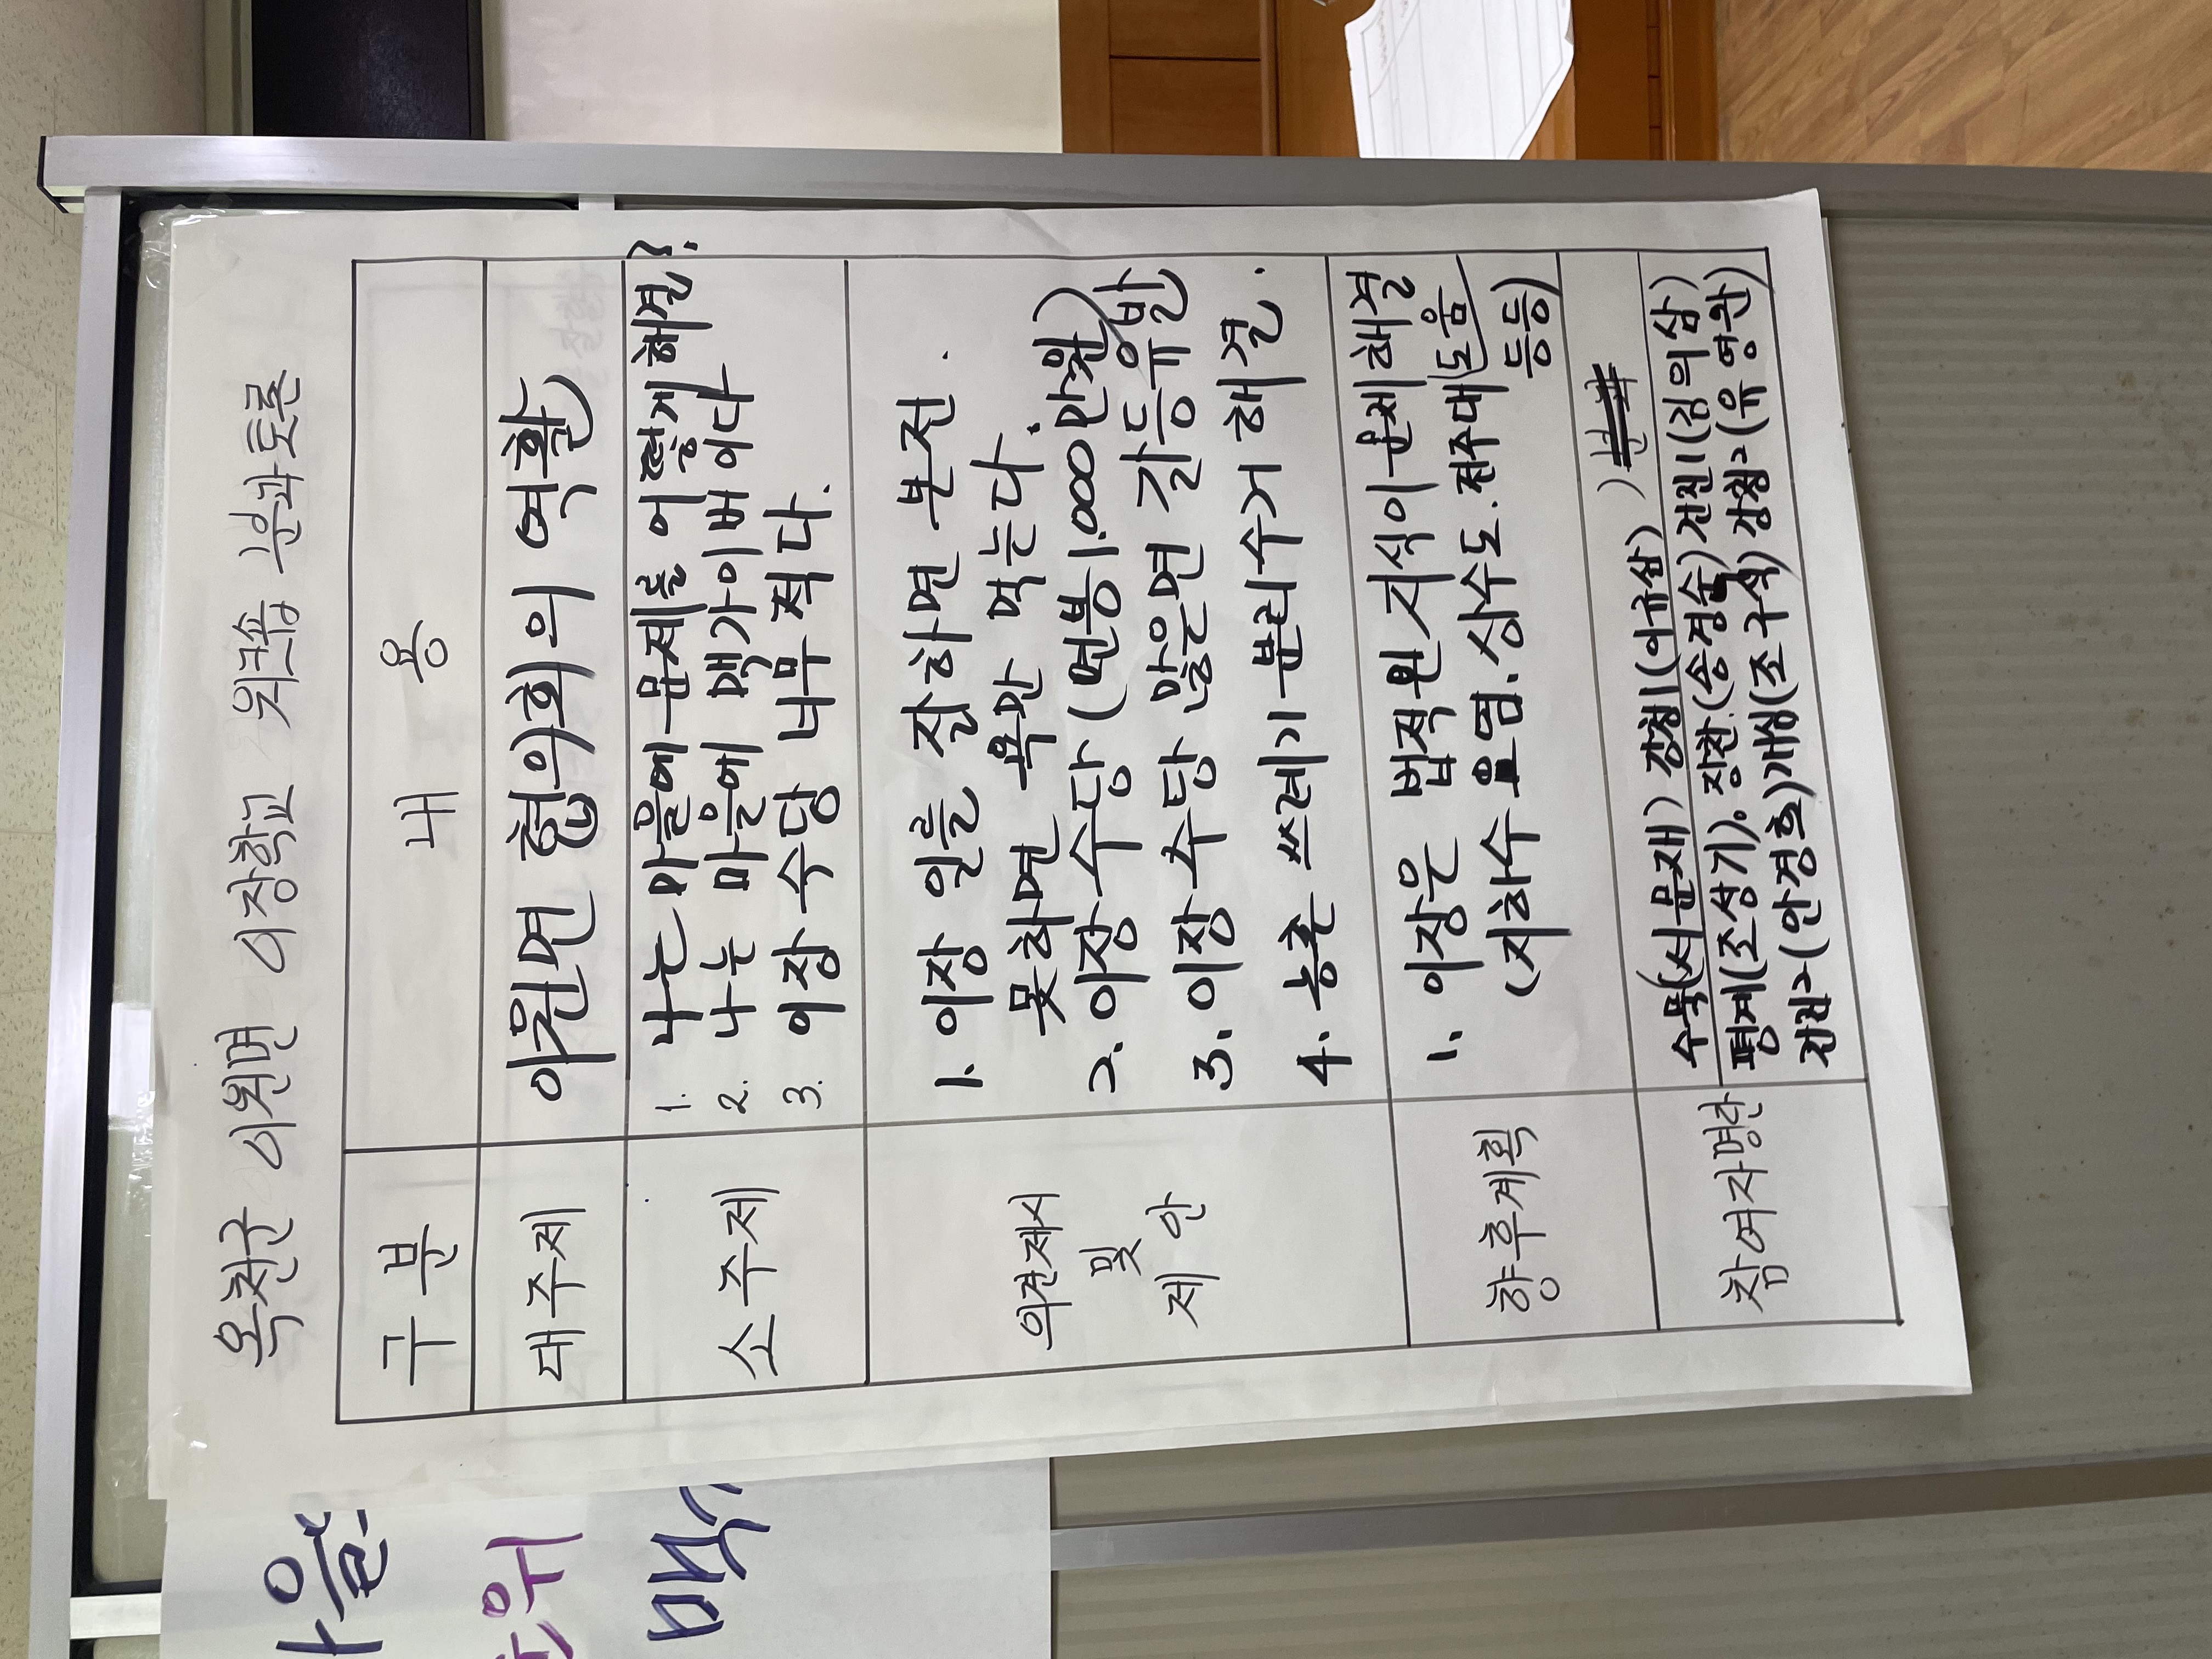 옥천군 이원면 이장학교 워크숍 분과토론
구 분 내 용
대주제 이원면 협의회의 역활
소주제
1. 나는 마을에 문제를 어떻게 해결?
2. 나는 마을에 맥가이버이다
3. 이장 수당 너무 적다.
의견제시
및
제 안
1. 이장 일를 잘하면 본전.
못하면 욕만 먹는다.
2. 이장 수당 (연봉 1.000만원)
3. 이장 수당 많은면 갈등유발
4. 농촌 쓰레기 분리수거 해결.
향후계획
1. 이장은 법적원 지식이 문제해결
(지하수 오염. 상수도. 전주대 도움
등등)
참여자명단
수묵(서문재) 강청1(이규삼)
평계(조성기). 장찬.(송경술) 건진1(김의삼)
(안경호) 개심(조구식) 강청2(유영완)